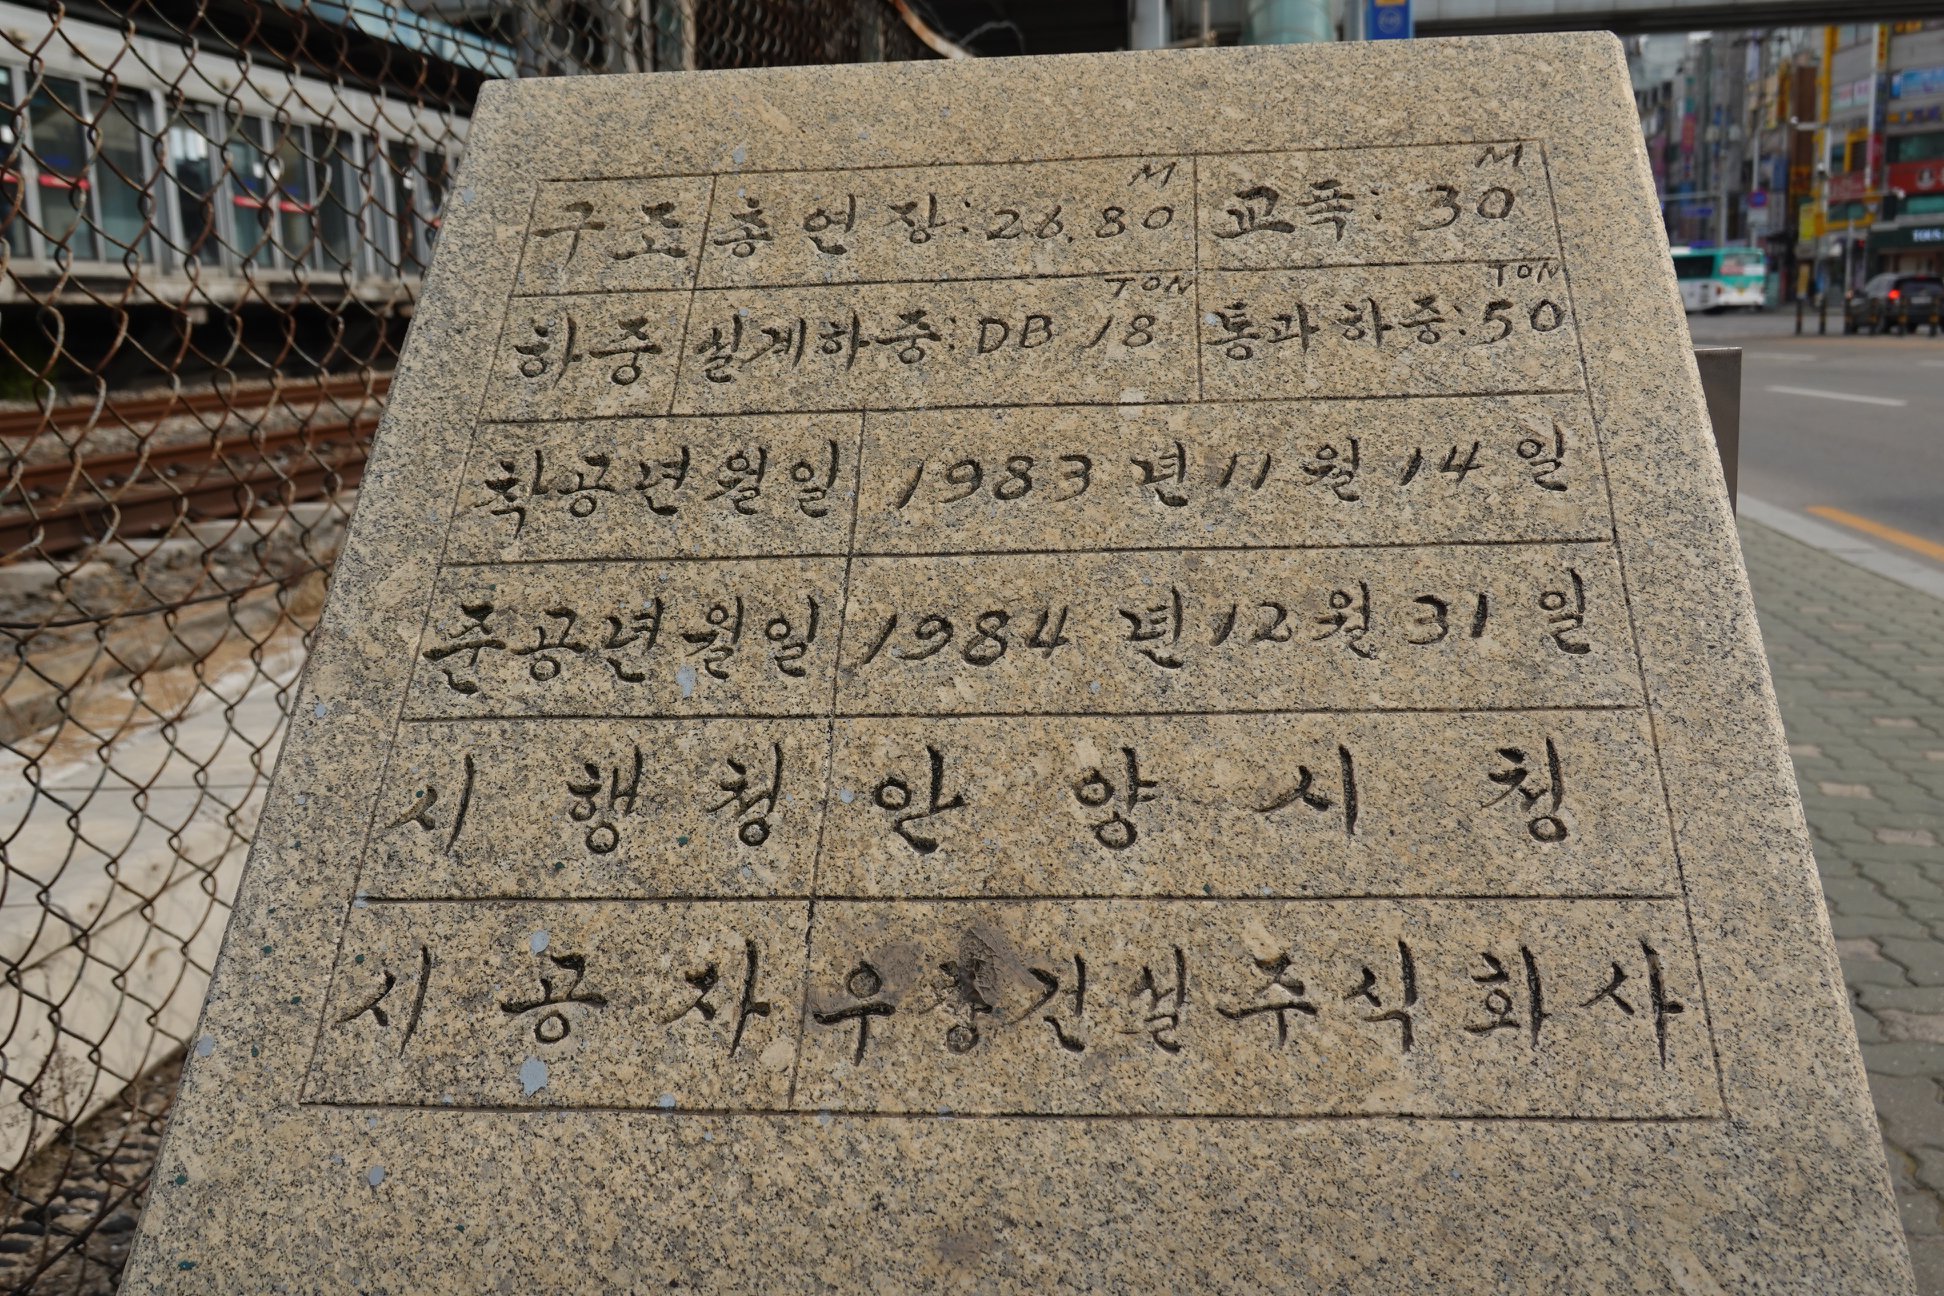 구조 총연장: 26.80 M 교폭: 30 M
하중 설계하중: DB 18 TON 통과하중: 50 TON
착공년월일 1983년 11월 14일
준공년월일 1984년 12월 31일
시행청 안양시청
시공자 우창건설주식회사